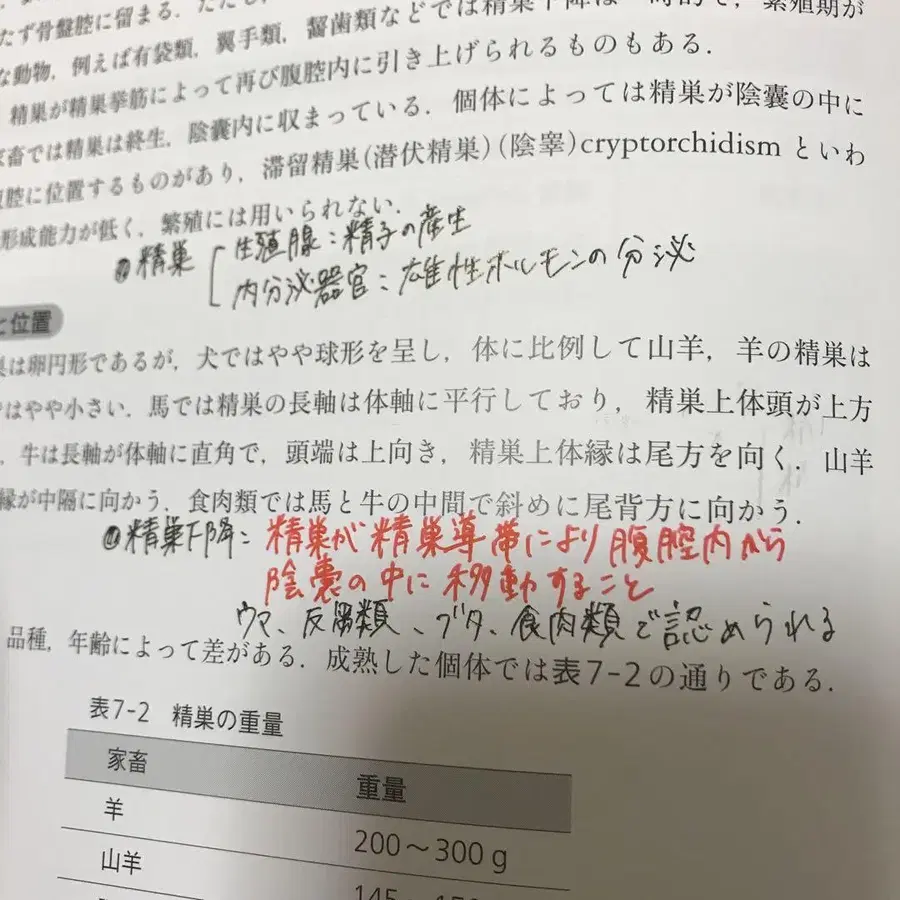 たず骨盤腔に留まる.ただし,
な動物,例えば有袋類,翼手類,齧歯類などでは精巣下降は一時的で,繁殖期が
精巣が精巣挙筋によって再び腹腔内に引き上げられるものもある.
家畜では精巣は終生,陰嚢内に収まっている.個体によっては精巣が陰嚢の中に
腹腔に位置するものがあり,滞留精巣(潜伏精巣)(陰睾)cryptorchidism といわ
形成能力が低く,繁殖には用いられない.
精巣 生殖腺:精子の産生
内分泌器官:雄性ホルモンの分泌
と位置
巣は卵円形であるが,犬ではやや球形を呈し,体に比例して山羊,羊の精巣は
はやや小さい.馬では精巣の長軸は体軸に平行しており,精巣上体頭が上方
.牛は長軸が体軸に直角で,頭端は上向き,精巣上体縁は尾方を向く.山羊
縁が中隔に向かう.食肉類では馬と牛の中間で斜めに尾背方に向かう.
精巣下降:精巣が精巣導帯により腹腔内から
陰嚢の中に移動すること
ウマ、反芻類、ブタ、食肉類で認められる
品種,年齢によって差がある.成熟した個体では表7-2の通りである.
表7-2 精巣の重量
家畜 重量
羊 200〜300 g
山羊 145〜150